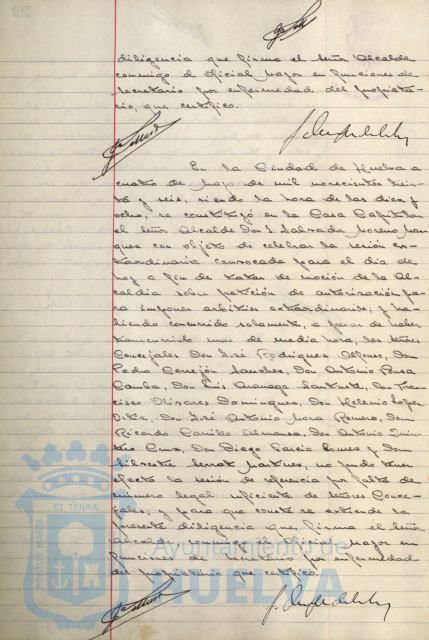 diligencia que firma el señor Alcalde
conmigo el Oficial Mayor en funciones de
Secretario por enfermedad del propieta-
rio, que certifico.
En la Ciudad de Huelva a
cuatro de Mayo de mil novecientos trein-
ta y seis, siendo la hora de las diez y
ocho, se constituyó en la Casa Capitular
el señor Alcalde Don Salvador Moreno Már-
quez con objeto de celebrar la sesión ex-
traordinaria convocada para el día de
hoy a fin de tratar de moción de la Al-
caldía sobre petición de autorización pa-
ra imponer arbitrios extraordinarios; y ha-
biendo concurrido solamente, a pesar de haber
transcurrido mas de media hora, los señores
Concejales Don José Rodríguez Alfonso, Don
Pedro Cerrejón Sanchez, Don Antonio Pousa
Camba, Don Luis
cisco Olivares Domínguez, Don Helenio López
Don José Antonio Mora Romero, Don
Ricardo Carrillo Almansa, Don Antonio Quin-
tero Cruz, Don Diego García Ramos y Don
Silvestre Serrat Martínez, no pudo tener
efecto la sesión de referencia por falta de
número legal suficiente de señores Conce-
jales; y para que conste se extiende la
presente diligencia que, firma el señor
Alcalde conmigo el Oficial Mayor en
funciones de Secretario por enfermedad
del propietario que certifico.
PORTUS MARIS
ET TERRAE
Ayuntamiento de
HUELVA